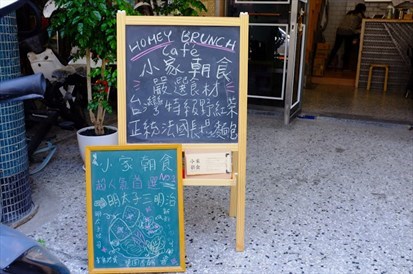 HOMEY BRUNCH
Café
小家朝食
嚴選食材
台灣特級野紅茶
正統法國長棍麵包
小家
朝食
小家朝食
超人氣
明太子三明治